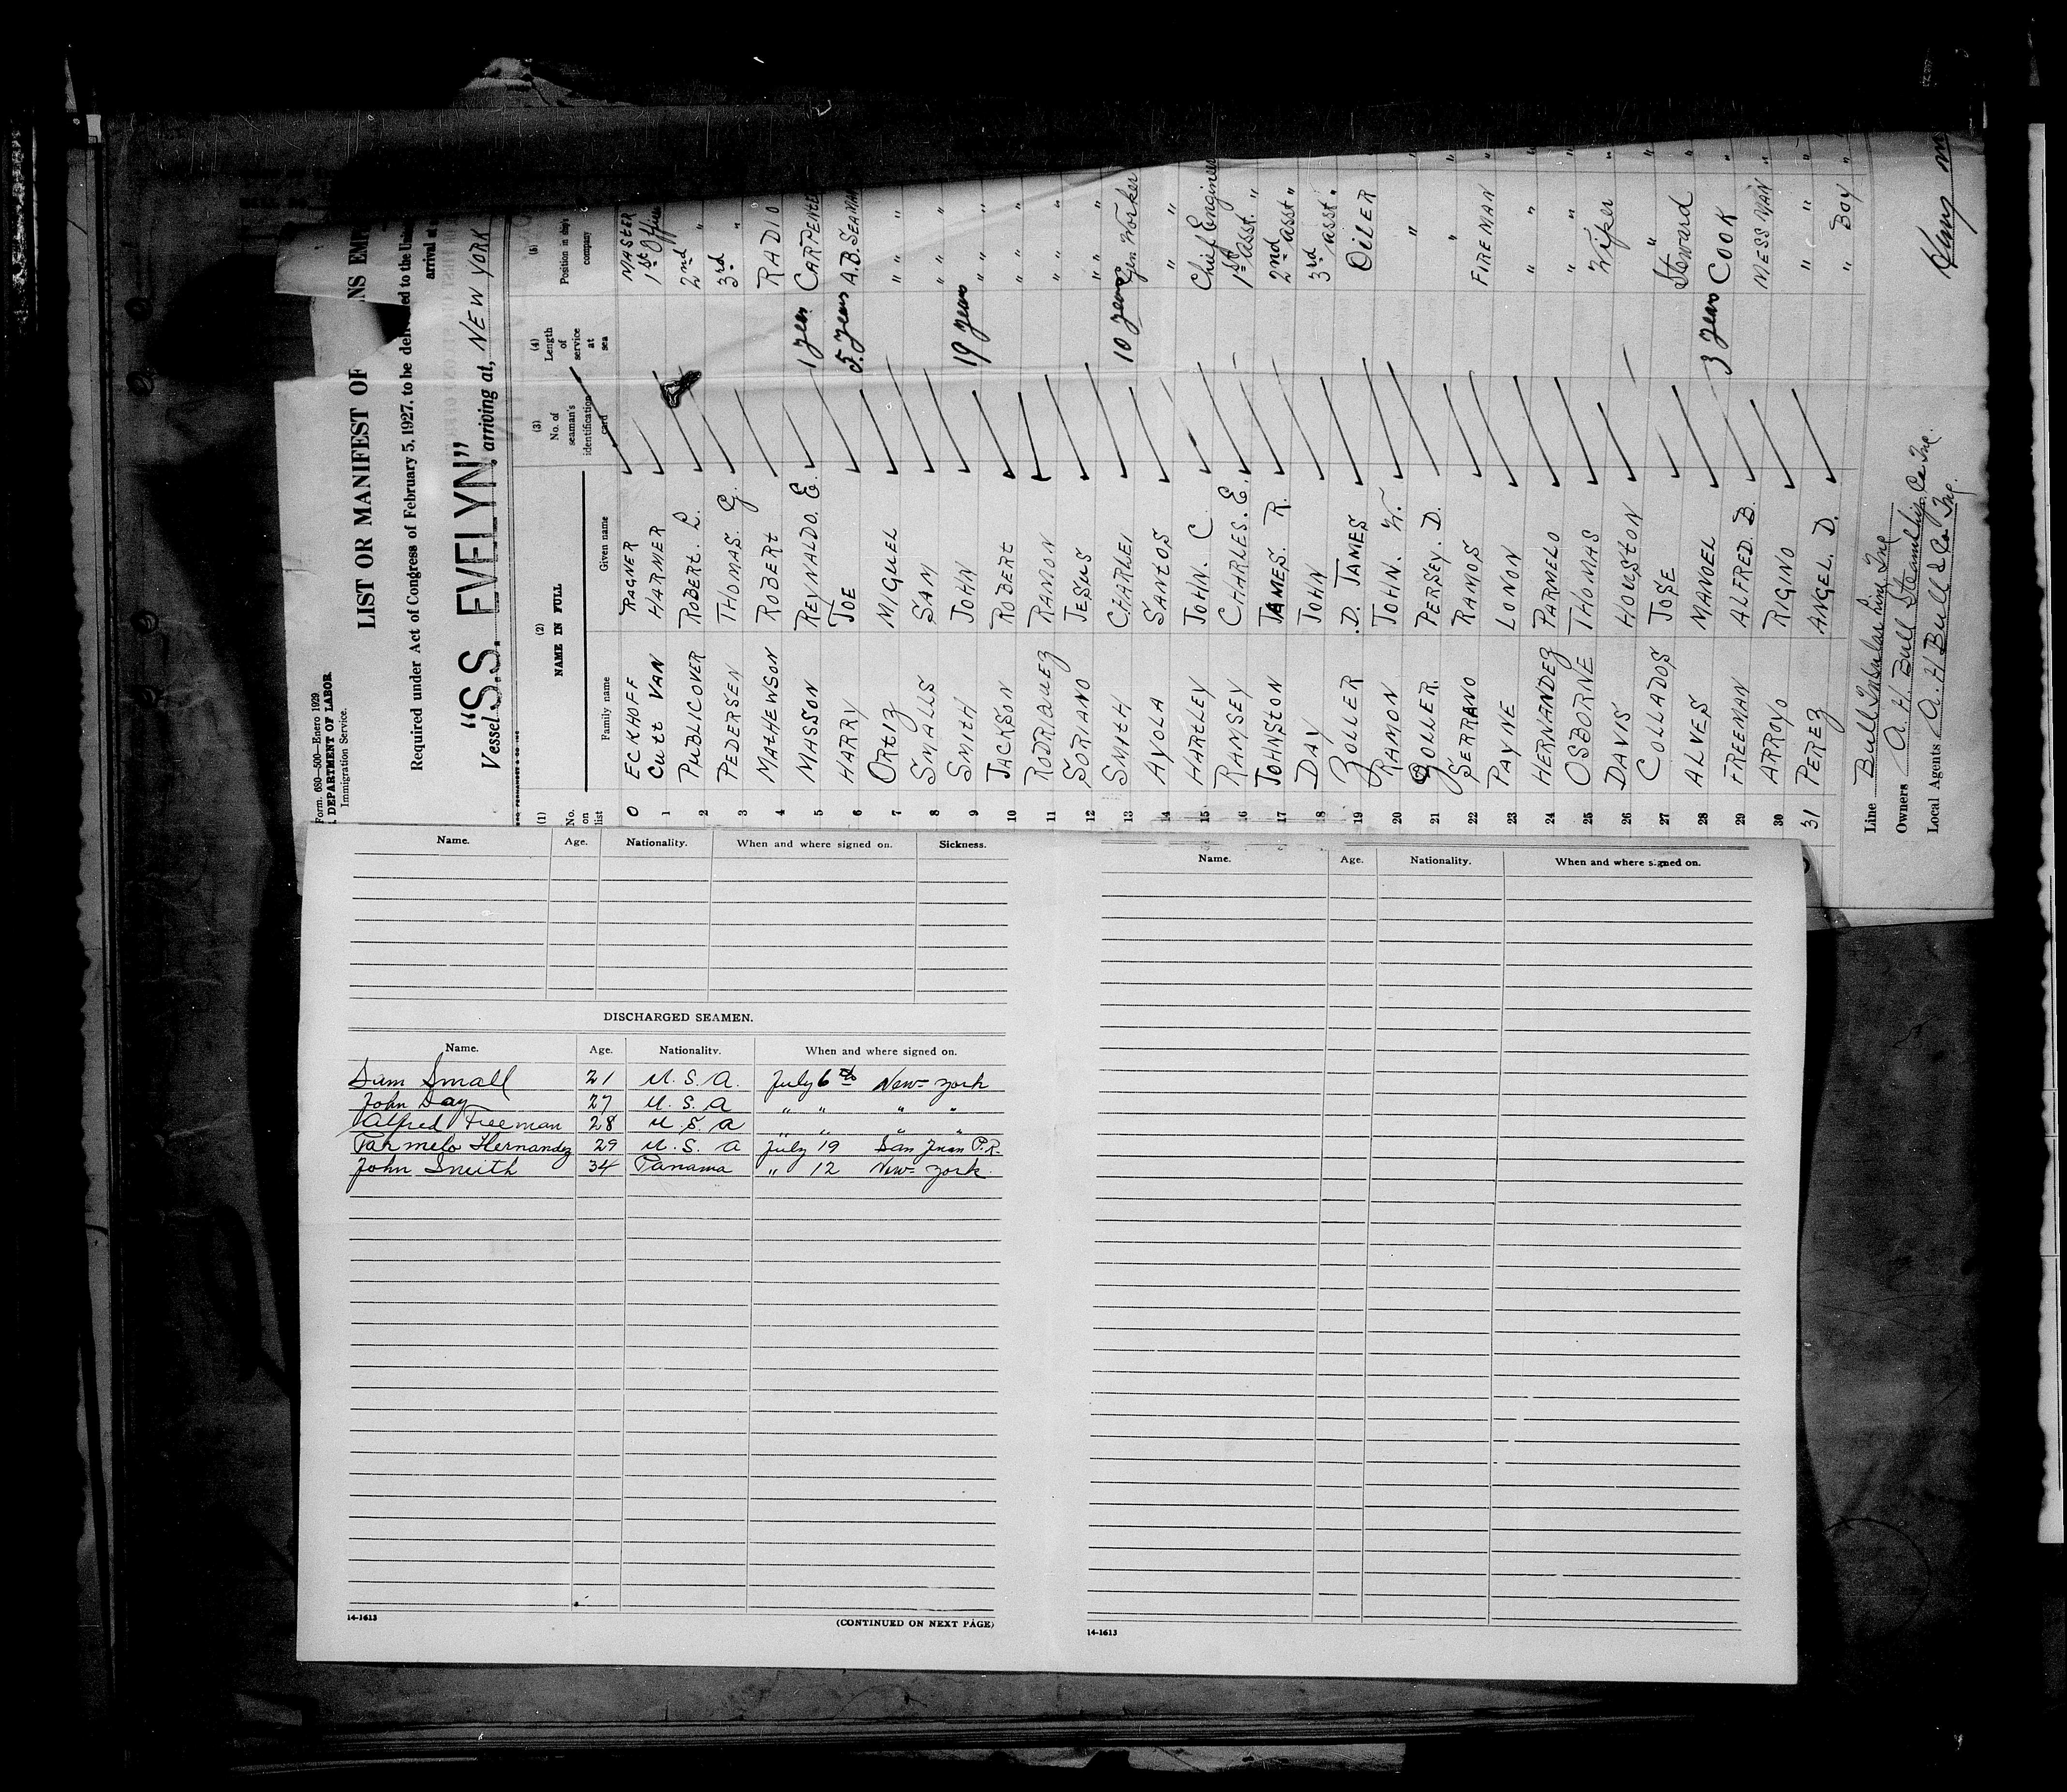 Form. 680—500—Enero 1929
DEPARTMENT OF LABOR
Immigration Service.
LIST OR MANIFEST OF
NS EMP
Required under Act of Congress of February 5, 1927, to be deli
ed to the Unite
arrival at
Vessel "S.S. EVELYN" arriving at, NEW YORK
(1) No. on list
(2) NAME IN FULL
Family name Given name
(3) No. of seaman's identification card
(4) Length of service at sea
(5) Position in ship's company
0 ECKHOFF RAGNER MASTER
1 Cutt VAN HARMER 1st Officer
2 PUBLICOVER ROBERT. L. 2nd "
3 PEDERSEN THOMAS. G. 3rd "
4 MATHEWSON ROBERT RADIO
5 MASSON REYNALDO. E. 1 year CARPENTE
6 HARRY JOE 5 years A.B. SEAMAN
7 ORTIZ MIGUEL " "
8 SMALLS SAM " "
9 SMITH JOHN 19 years " "
10 JACKSON ROBERT " "
11 RODRIQUEZ RAMON " "
12 SORIANO JESUS " "
13 SMITH CHARLEI 10 years Gen. Worker
14 AYOLA SANTOS " "
15 HARTLEY JOHN. C Chief Engineer
16 RAMSEY CHARLES. E. 1st asst. "
17 JOHNSTON JAMES. R. 2nd asst "
18 DAY JOHN 3rd asst. "
19 ZOLLER D. JAMES OILER
20 RAMON JOHN. W. "
21 ZOLLER. PERSEY. D. "
22 SERRANO RAMOS FIREMAN "
23 PAYNE LONON " "
24 HERNANDEZ PARMELO " "
25 OSBORNE THOMAS Wiper "
26 DAVIS HOUSTON " "
27 COLLADOS JOSE Steward "
28 ALVES MANOEL 3 years COOK "
29 FREEMAN ALFRED. B. MESSMAN "
30 ARROYO RIGINO " "
31 PEREZ ANGEL. D. " BOY "
Line Bull Insular Line Inc
Owners A. H. Bull Steamship Co Inc.
Local Agents A. H Bull & Co Inc.
Name. Age. Nationality. When and where signed on. Sickness.
DISCHARGED SEAMEN.
Name. Age. Nationality. When and where signed on.
Sam Small 21 U. S. A. July 6th New York
John Day 27 U. S. A " " " "
Alfred Freeman 28 U. S. A " " " "
Parmelo Hernandez 29 U. S. A July 19 San Juan P.R.
John Smith 34 Panama " 12 New York.
14-1613
(CONTINUED ON NEXT PAGE)
Name. Age. Nationality. When and where signed on.
14-1613